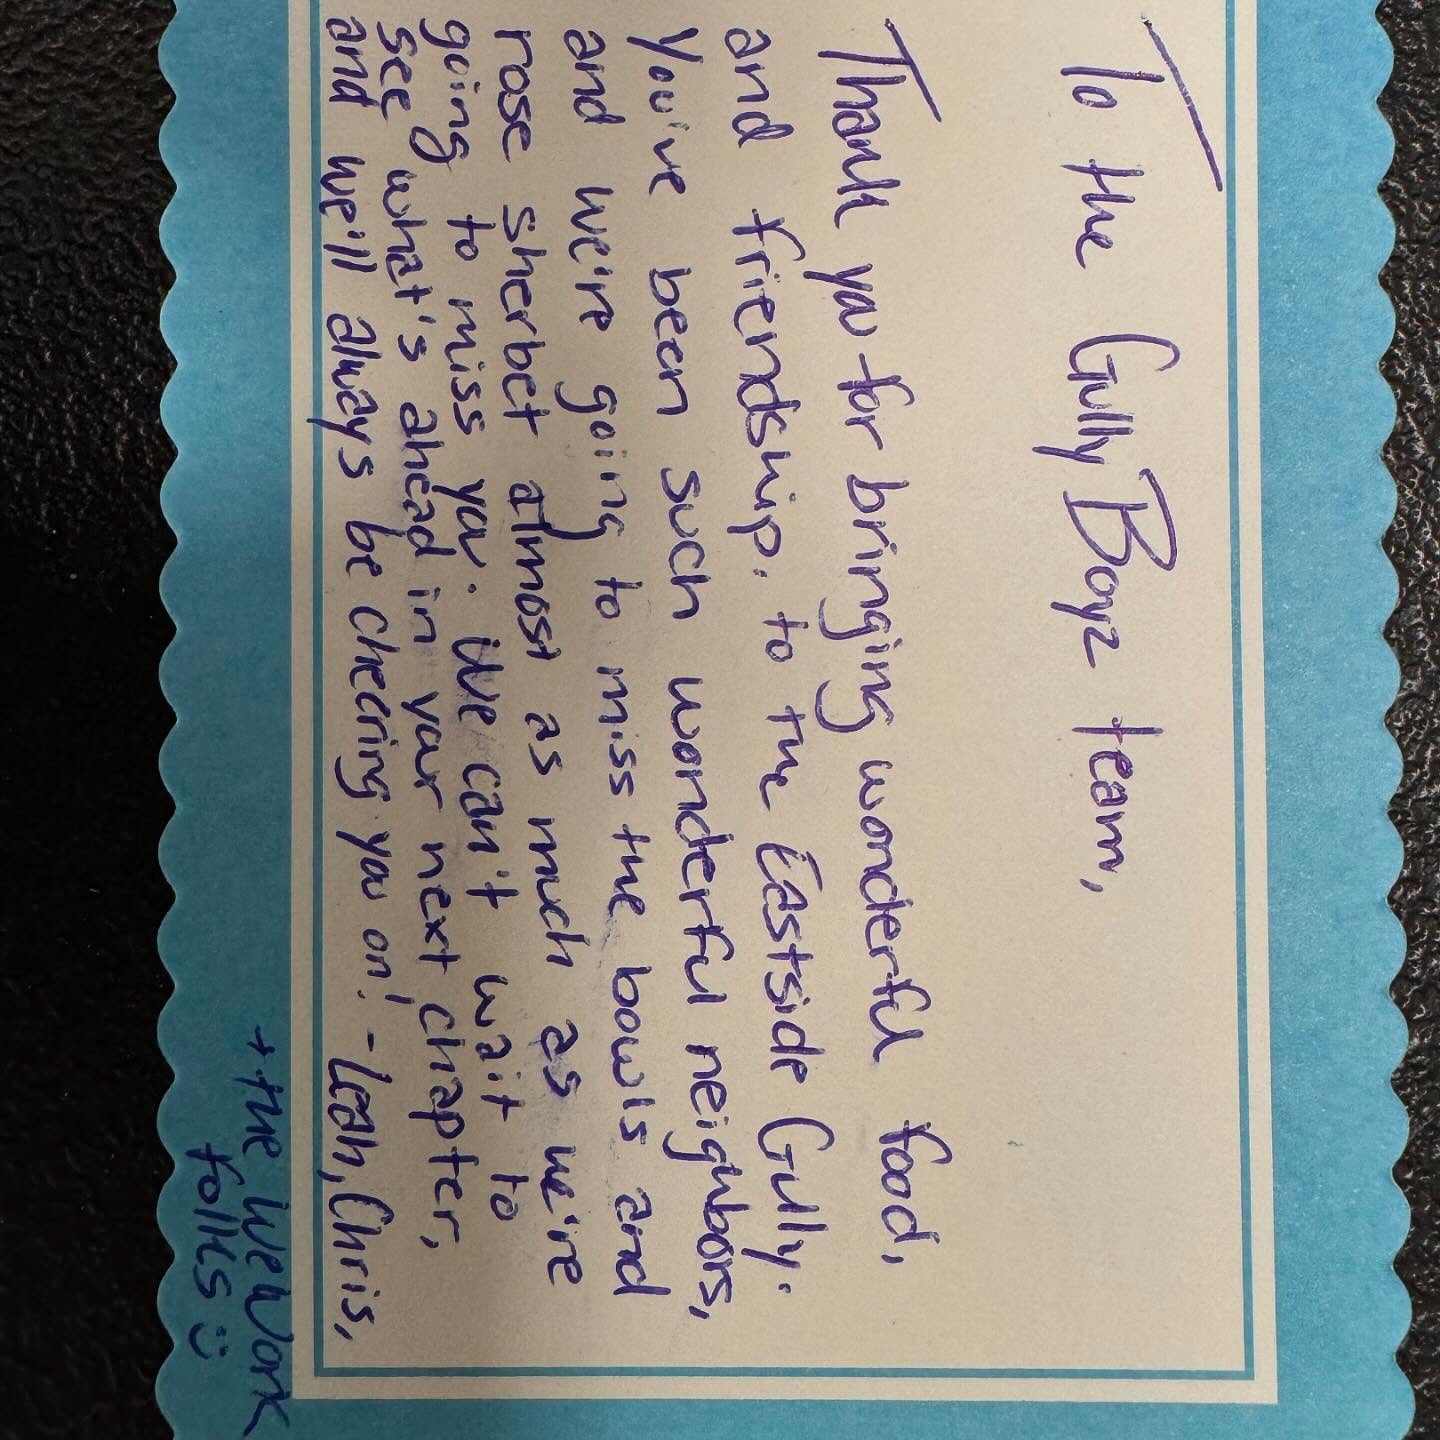 To the Gully Boyz team,
Thank you for bringing wonderful food,
and friendship. to the Eastside Gully.
You've been such wonderful neighbors,
and we're going to miss the bowls and
rose sherbet almost as much as we're
going to miss you. We can't wait to
see what's ahead in your next chapter,
and we'll always be cheering you on! - Leah, Chris,
+ the WeWork
folks :)